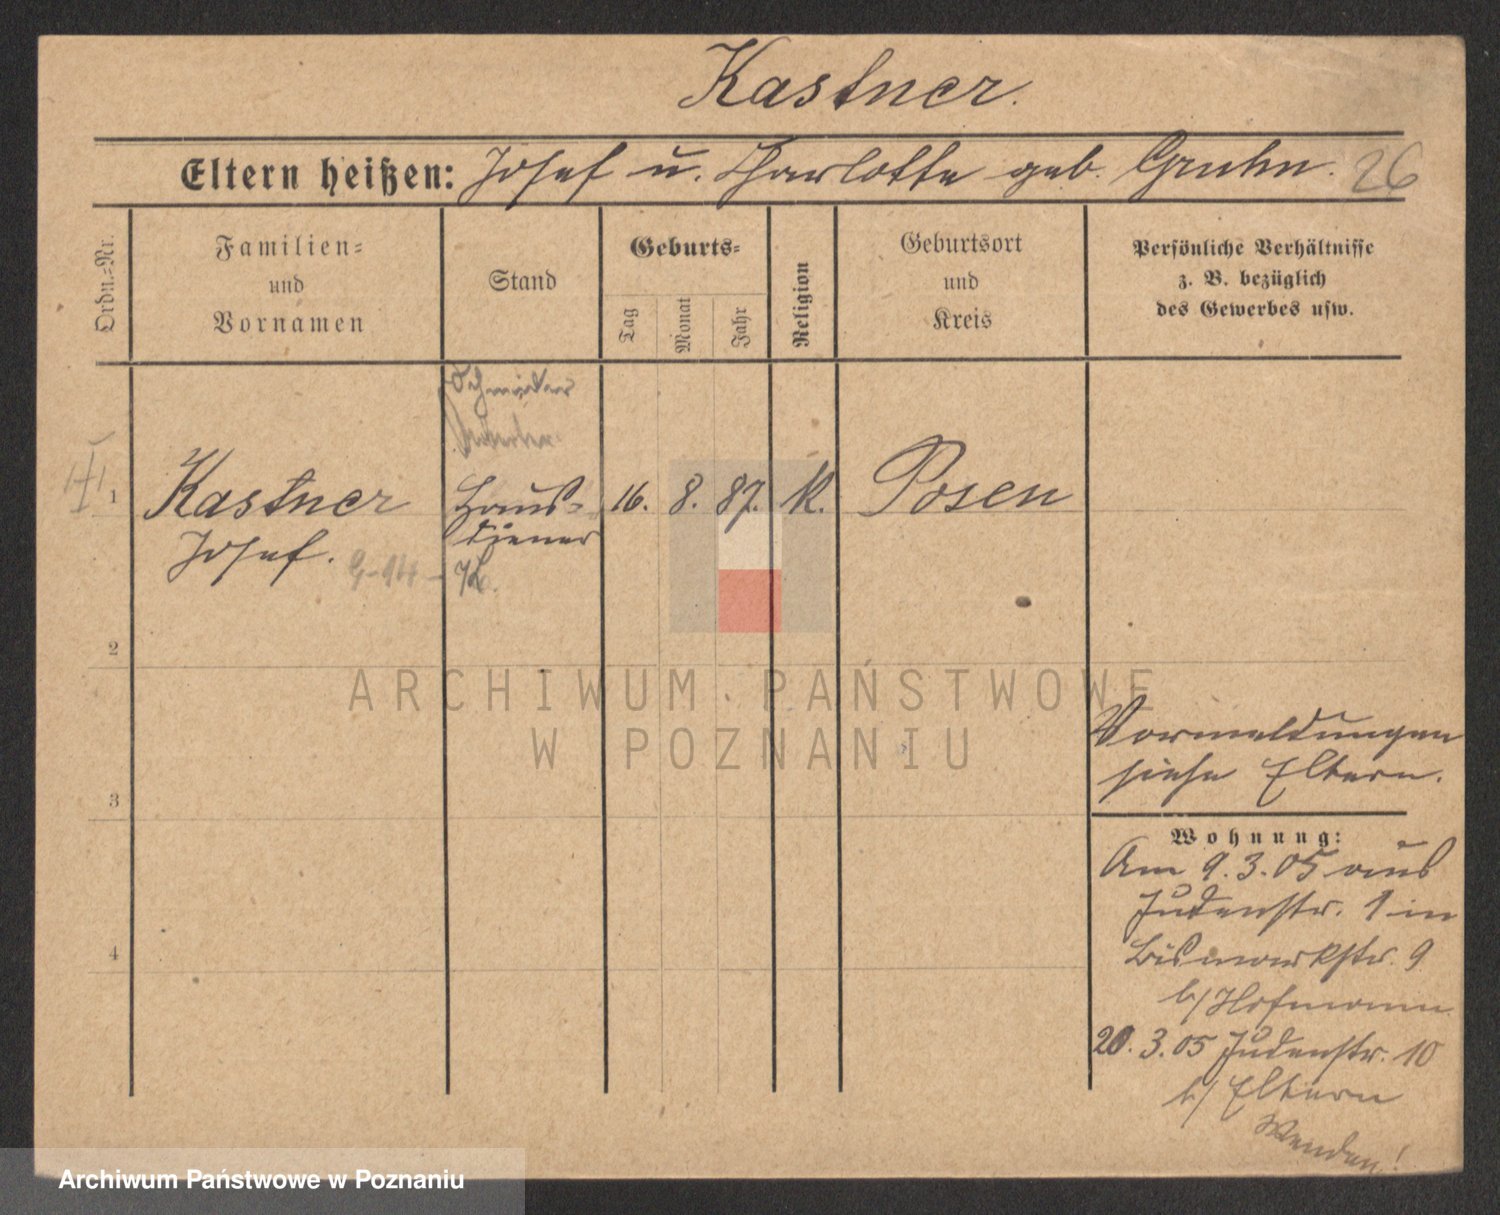 Kastner.
Eltern heißen: Josef u. Charlotte geb. Gruhn. 26
Ordn.=Nr.
Familien=
und
Vornamen
Stand
Geburts=
Tag
Monat
Jahr
Religion
Geburtsort
und
Kreis
Persönliche Verhältnisse
z. B. bezüglich
des Gewerbes usw.
Schmied
1 Kastner Haus= 16. 8. 87. K. Posen
Josef. diener
2
ARCHIWUM PAŃSTWOWE
W POZNANIU
Vormeldungen
siehe Eltern.
3
Wohnung:
Am 9.3.05 aus
Judenstr. 1 in
Bismarkstr. 9
b/ Hofmann
4
20.3.05 Judenstr. 10
b/ Eltern
Wenden!
Archiwum Państwowe w Poznaniu